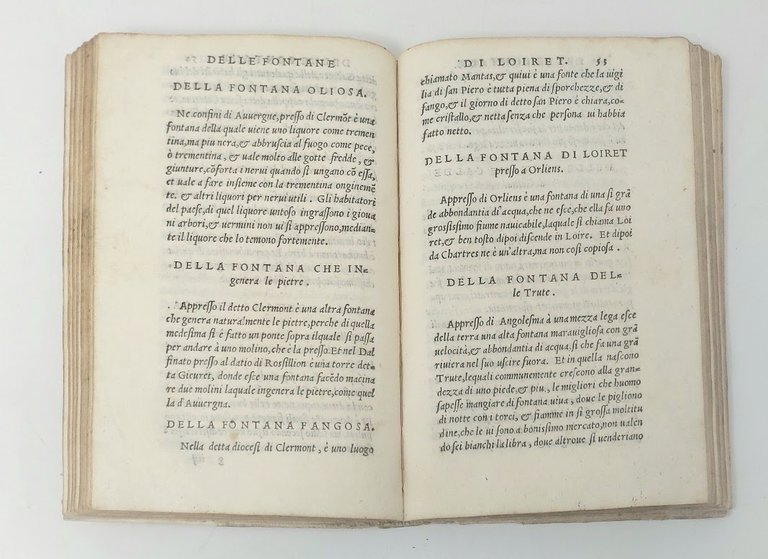 DELLE FONTANE
DELLA FONTANA OLIOSA.
Ne confini di Auuergne, presso di Clermōt è una
fontana della quale uiene uno liquore come tremen
tina, ma piu nera, & abbruscia al fuogo come pece,
ò trementina, & uale molto alle gotte fredde, &
giunture, cōforta i nerui quando si ungano cō essa,
et uale a fare insieme con la trementina onginemē
te. & altri liquori per nerui utili. Gli habitatori
del paese, di quel liquore untoso ingrassono i gioua
ni arbori, & uermini non ui si appressono, median-
te il liquore che lo temono fortemente.
DELLA FONTANA CHE IN=
genera le pietre.
Appresso il detto Clermont è una altra fontana
che genera naturalmente le pietre, perche di quella
medesima si è fatto un ponte sopra il quale si passa
per andare à uno molino, che è la presso. Et nel Dal
finato presso al datio di Rossillion è una torre det=
ta Gieuret, donde esce una fontana facēdo macina
re due molini laquale ingenera le pietre, come quel
la d'Auuergna.
DELLA FONTANA FANGOSA.
Nella detta diocesi di Clermont, è uno luogo
DI LOIRET. 53
chiamato Mantas, & quiui è una fonte che la uigi
lia di san Piero è tutta piena di sporchezze, & di
fango, & il giorno di detto san Piero è chiara, co=
me cristallo, & netta senza che persona ui habbia
fatto netto.
DELLA FONTANA DI LOIRET
presso a Orliens.
Appresso di Orliens è una fontana di una sì grā
de abbondantia di acqua, che ne esce, che ella fa uno
grossissimo fiume nauicabile, laqual si chiama Loi
ret, & ben tosto dipoi discende in Loire. Et dipoi
da Chartres ne è un'altra, ma non così copiosa.
DELLA FONTANA DEL=
le Trute.
Appresso di Angolesma à una mezza lega esce
della terra una alta fontana marauigliosa con grā
uelocità, & abbondantia di acqua. si che fa una grā
riuiera nel suo uscire fuora. Et in quella nascono
Trute, lequali communemente crescono alla gran=
dezza di uno piede, & piu, le migliori che huomo
sapesse mangiare di fontana uiua, doue le pigliono
di notte con i torci, & fiamme in sì grossa moltitu
dine, che le ui sono a bonissimo mercato, non ualen
do sei bianchi la libra, doue altroue si uenderiano